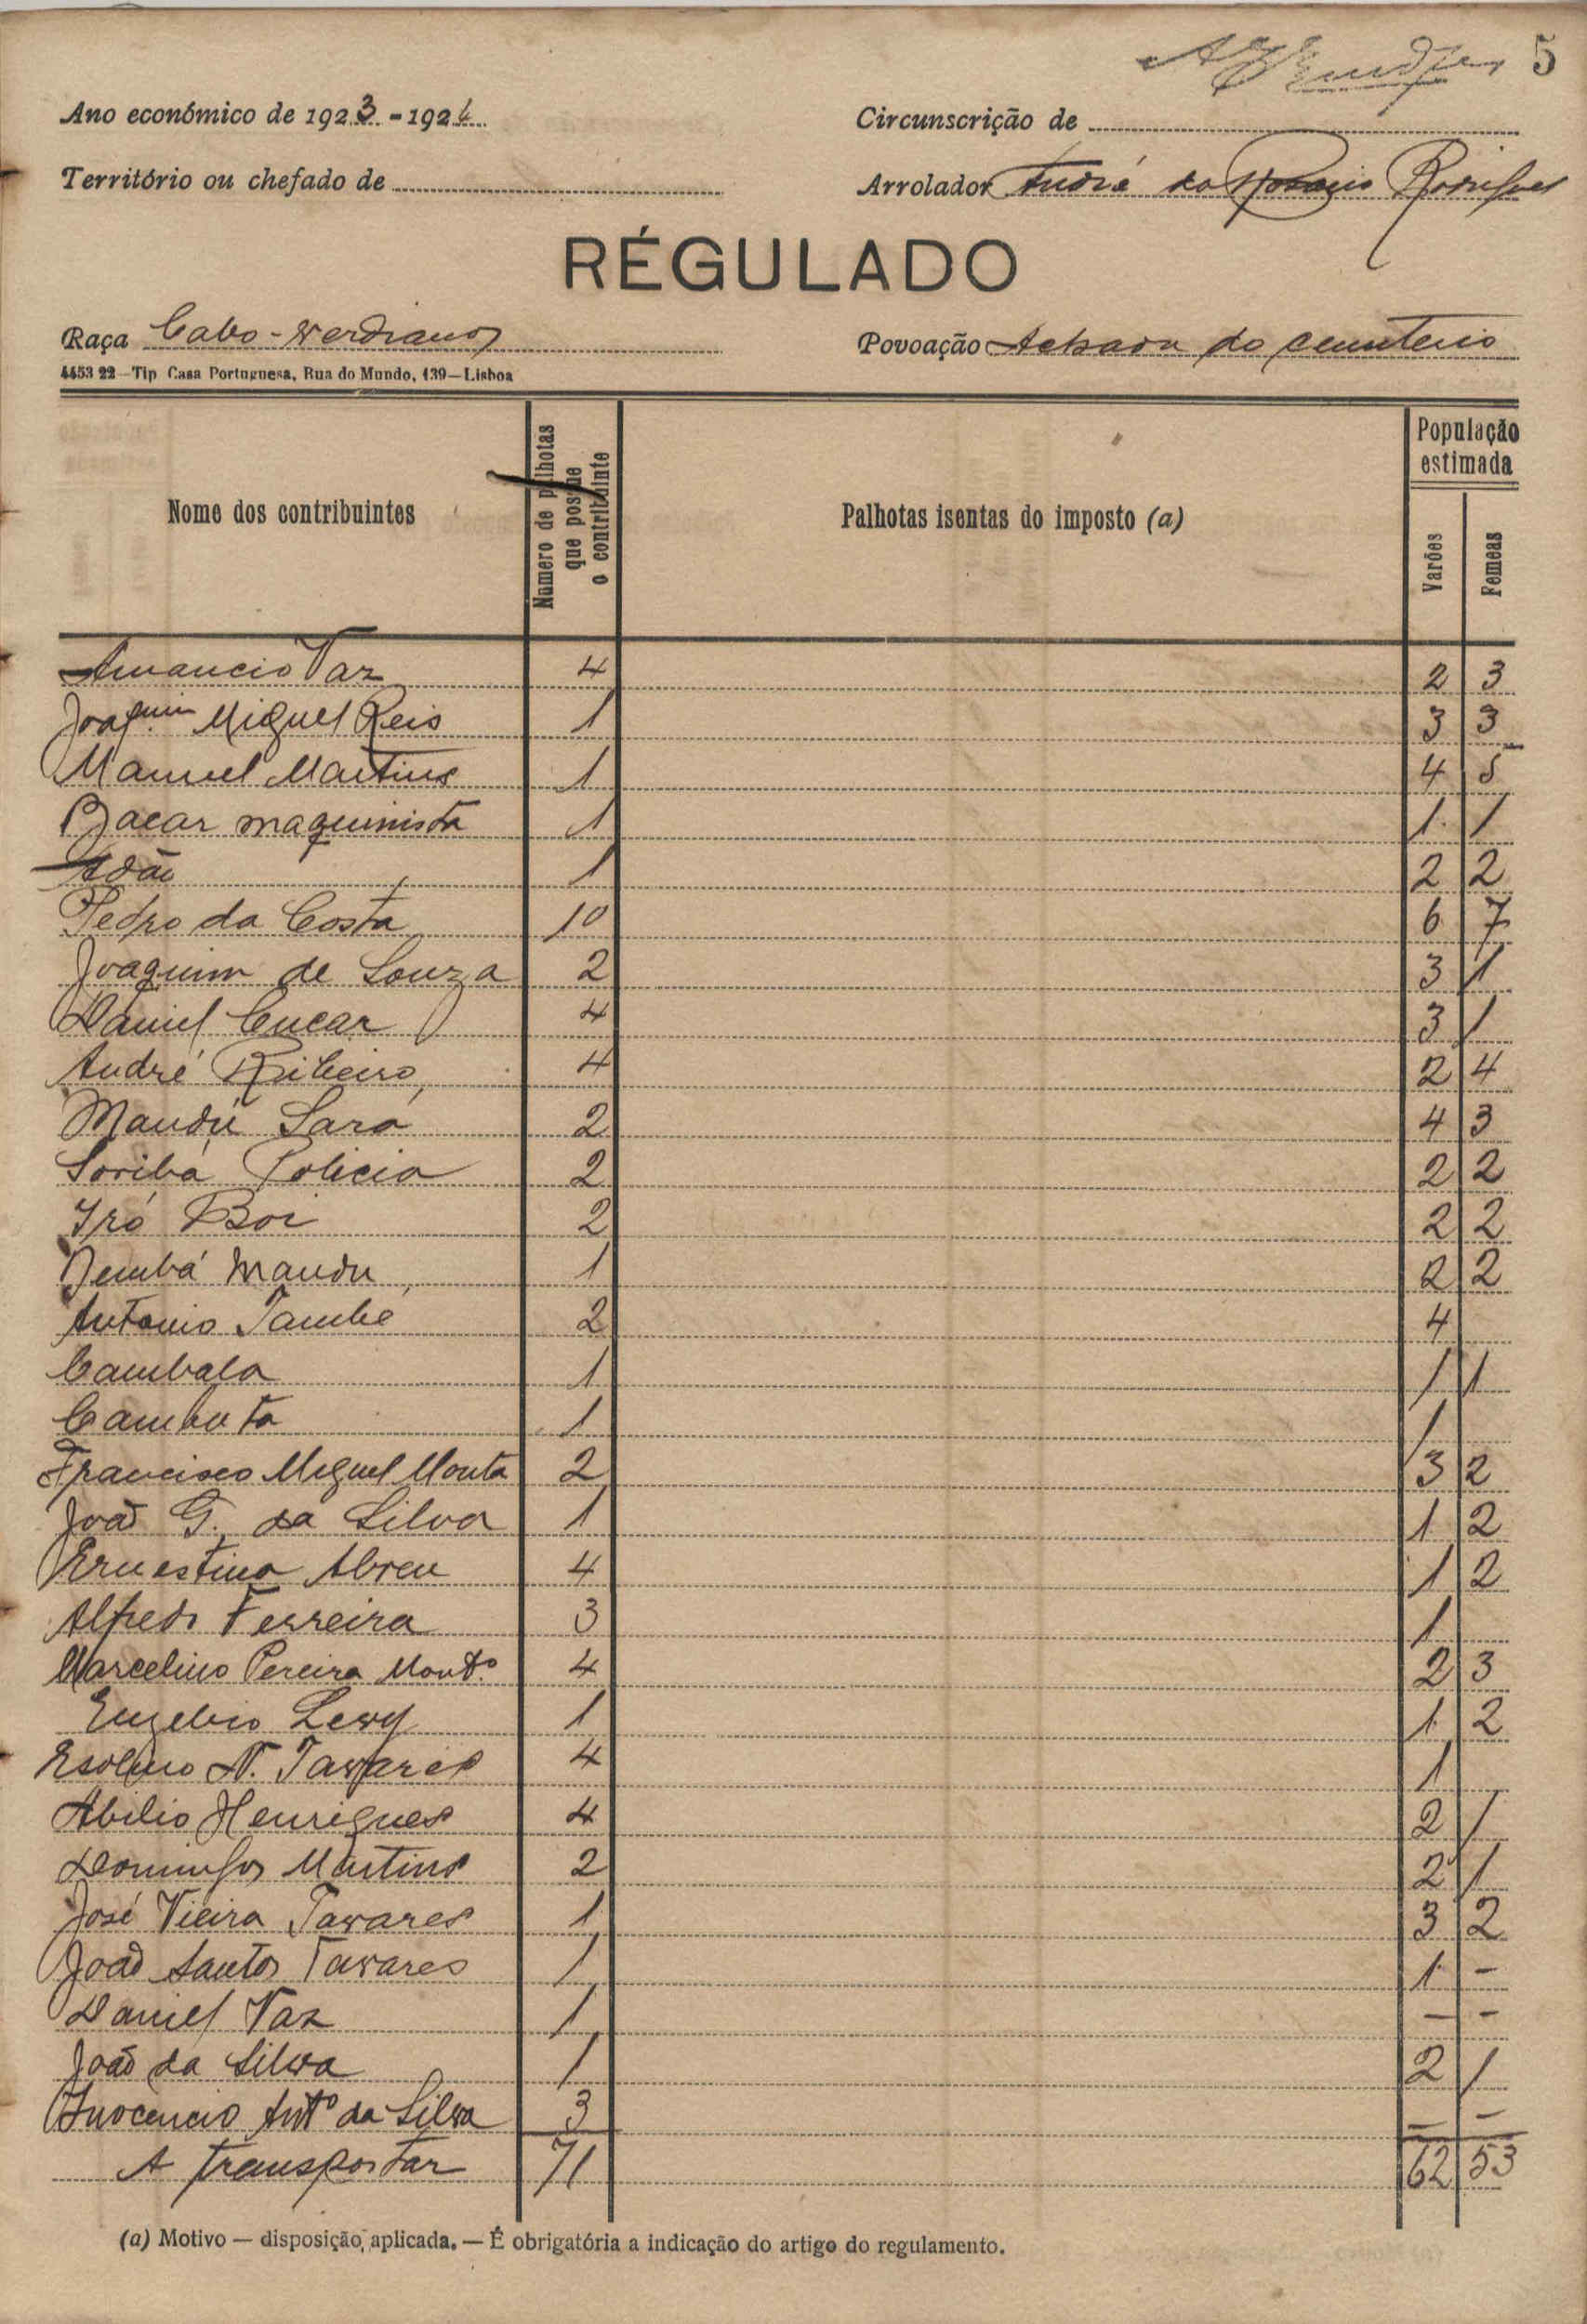 5
Ano económico de 1923-1924
Circunscrição de
Território ou chefado de
Arrolador André do Rosario Rodrigues
RÉGULADO
Raça Cabo-verdianos
Povoação Achada do cemiterio
4453 22—Tip Casa Portuguesa, Rua do Mundo, 139—Lisboa
Nome dos contribuintes
Número de palhotas que possue o contribuinte
Palhotas isentas do imposto (a)
População estimada
Varões
Femeas
Amancio Vaz 4 2 3
Joaquim Miguel Reis 1 3 3
Manuel Martins 1 4 5
Bacar maquinista 1 1 1
Adão 1 2 2
Pedro da Costa 10 6 7
Joaquim de Souza 2 3 1
Daniel 4 3 1
André Ribeiro 4 2 4
Mandú Sará 2 4 3
Soribá Policia 2 2 2
Iró Boi 2 2 2
Dembá Mandu 1 2 2
Antonio Tambe 2 4
Cambala 1 1 1
Cambuta 1 1
Francisco Miguel Monta 2 3 2
João G. da Silva 1 1 2
Ernestina Abreu 4 1 2
Alfredo Ferreira 3 1
Marcelino Pereira Montº 4 2 3
Euzebio Levy 1 1 2
N. Tavares 4 1
Abilio Henriques 4 2 1
Domingos Martins 2 2 1
José Vieira Tavares 1 3 2
João Santos Tavares 1 1 -
Daniel Vaz 1 - -
João da Silva 1 2 1
Inocencio Antº da Silva 3 - -
A transportar 71 62 53
(a) Motivo — disposição aplicada. — É obrigatória a indicação do artigo do regulamento.